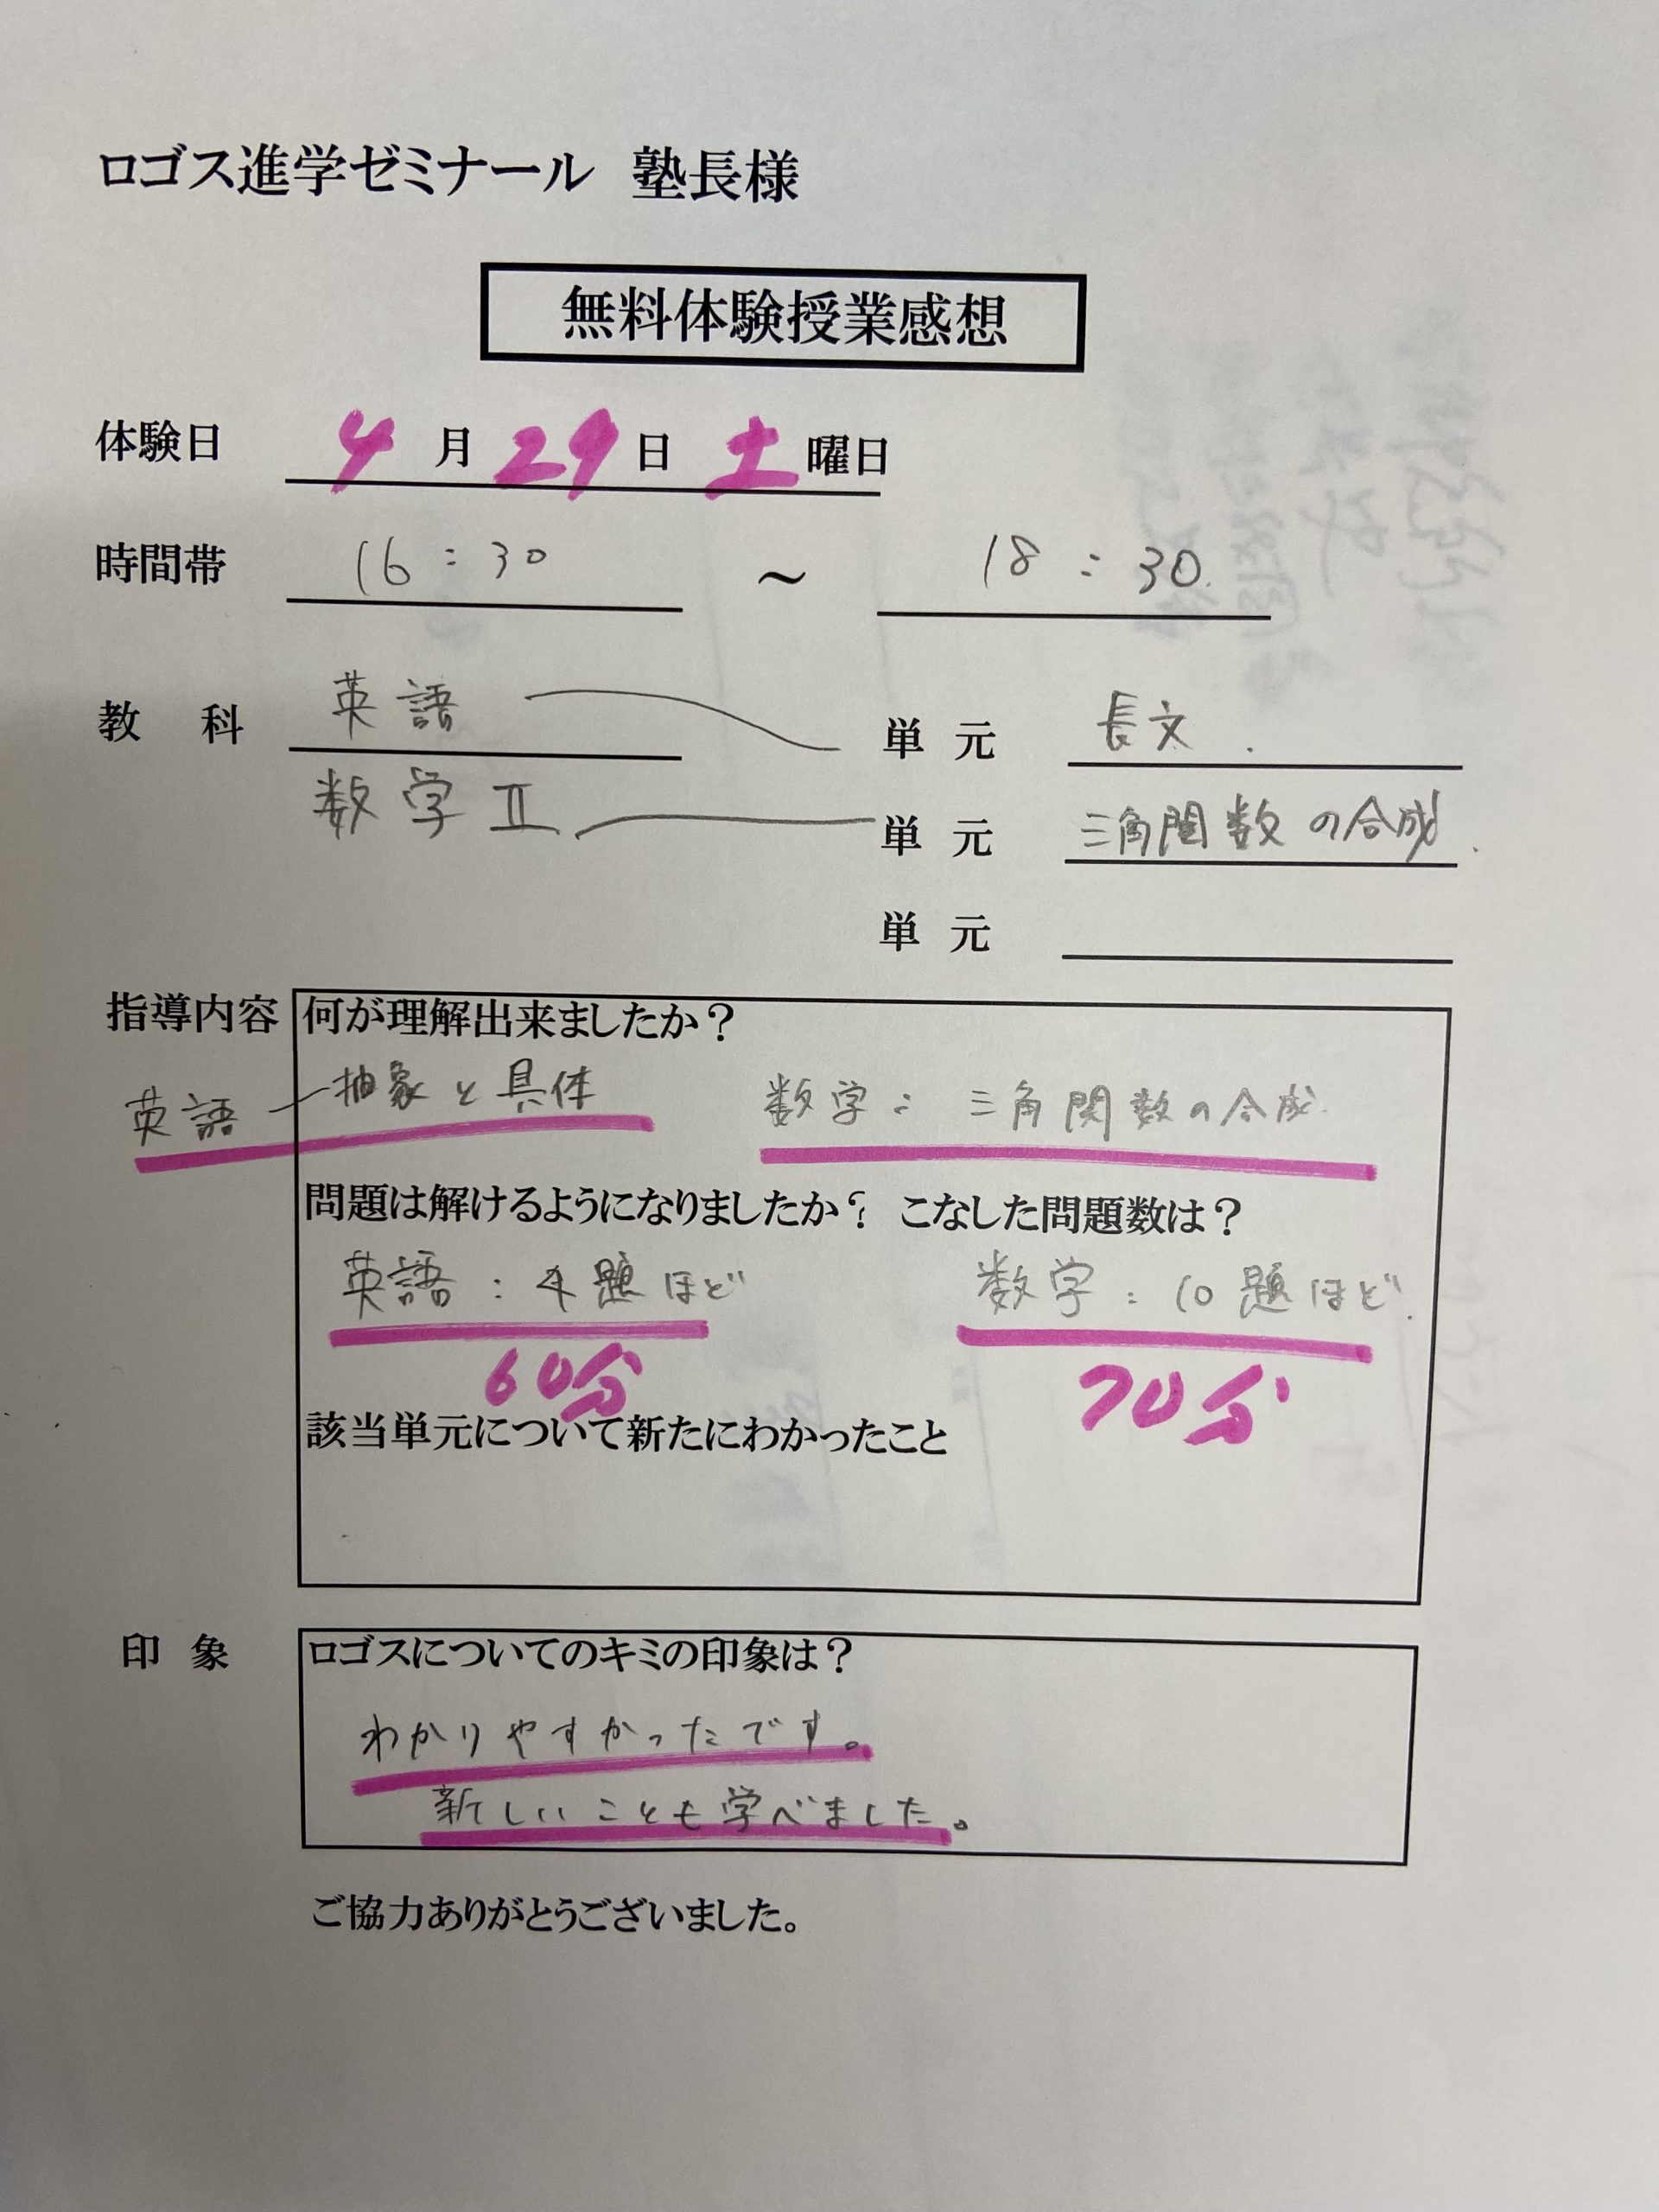 ロゴス進学ゼミナール 塾長様
無料体験授業感想
体験日 4月29日 土曜日
時間帯 16:30 ～ 18:30
教科 英語 単元 長文
数学Ⅱ 単元 三角関数の合成
単元
指導内容 何が理解出来ましたか？
英語 抽象と具体 数学：三角関数の合成
問題は解けるようになりましたか？ こなした問題数は？
英語：4題ほど 数学：10題ほど
60分 70分
該当単元について新たにわかったこと
印象 ロゴスについてのキミの印象は？
わかりやすかったです。
新しいことも学べました。
ご協力ありがとうございました。